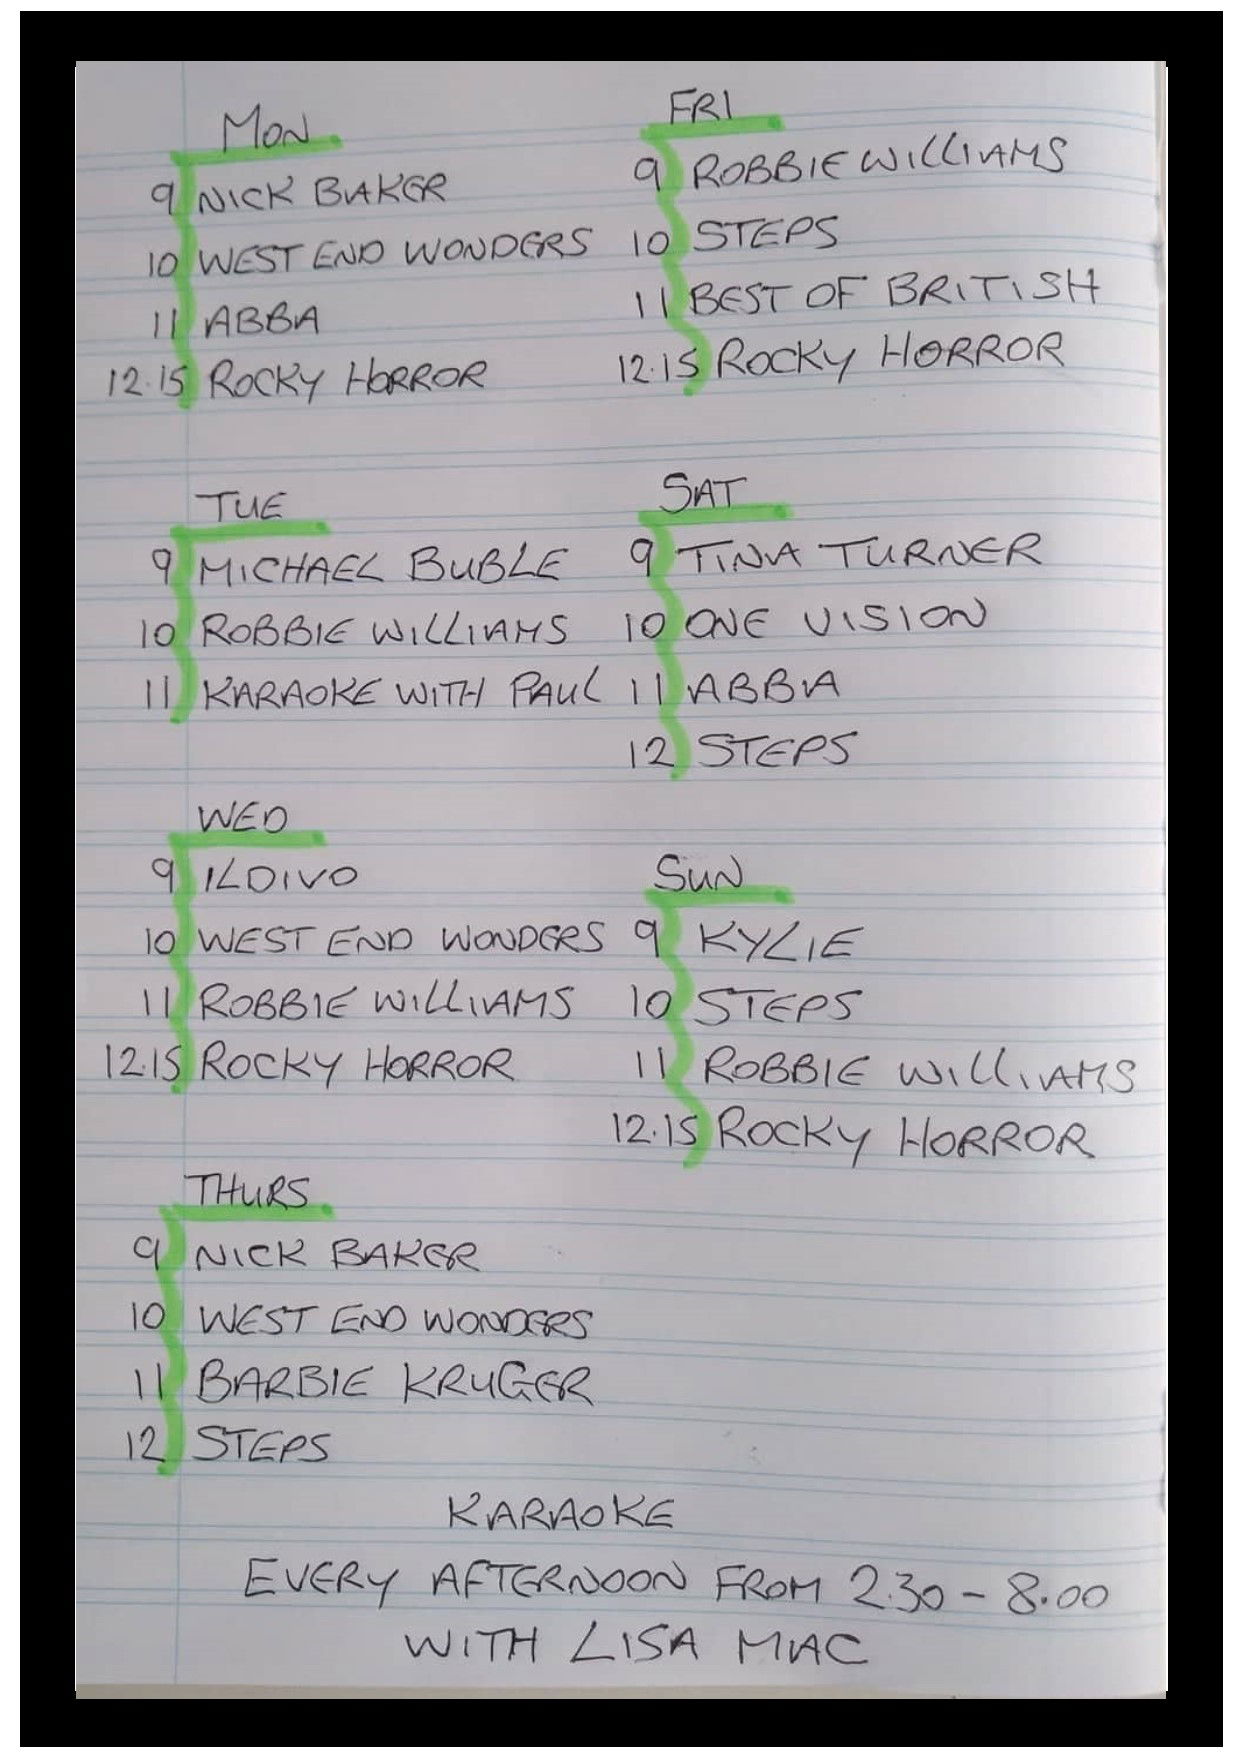 MON
9 NICK BAKER
10 WEST END WONDERS
11 ABBA
12.15 ROCKY HORROR
TUE
9 MICHAEL BUBLE
10 ROBBIE WILLIAMS
11 KARAOKE WITH PAUL
WED
9 ILDIVO
10 WEST END WONDERS
11 ROBBIE WILLIAMS
12.15 ROCKY HORROR
THURS
9 NICK BAKER
10 WEST END WONDERS
11 BARBIE KRUGER
12 STEPS
FRI
9 ROBBIE WILLIAMS
10 STEPS
11 BEST OF BRITISH
12.15 ROCKY HORROR
SAT
9 TINA TURNER
10 ONE VISION
11 ABBA
12 STEPS
SUN
9 KYLIE
10 STEPS
11 ROBBIE WILLIAMS
12.15 ROCKY HORROR
KARAOKE
EVERY AFTERNOON FROM 2.30 - 8.00
WITH LISA MAC